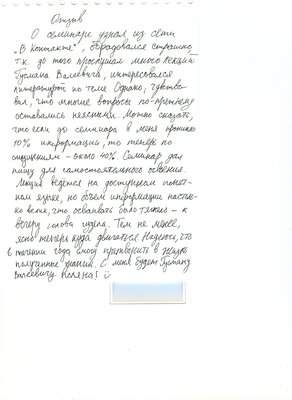 Отзыв
О семинаре узнал из сети
„В Контакте", обрадовался страшно,
т.к. до того прослушал много лекций
Гусмана Валеевича, интересовался
литературой по теме. Однако, чувство-
вал, что многие вопросы по-прежнему
оставались неясными. Можно сказать,
что если до семинара в меня проникло
10% информации, то теперь по
ощущениям – около 40%. Семинар дал
пищу для самостоятельного освоения.
Лекция ведётся на доступном понят-
ном языке, но объём информации настоль-
ко велик, что осваивать было тяжело – к
вечеру голова гудела. Тем не менее,
ясно теперь куда двигаться. Надеюсь, что
в течении года смогу претворить в жизнь
полученные знания. С меня будет Гусману
Валеевичу поляна! :)